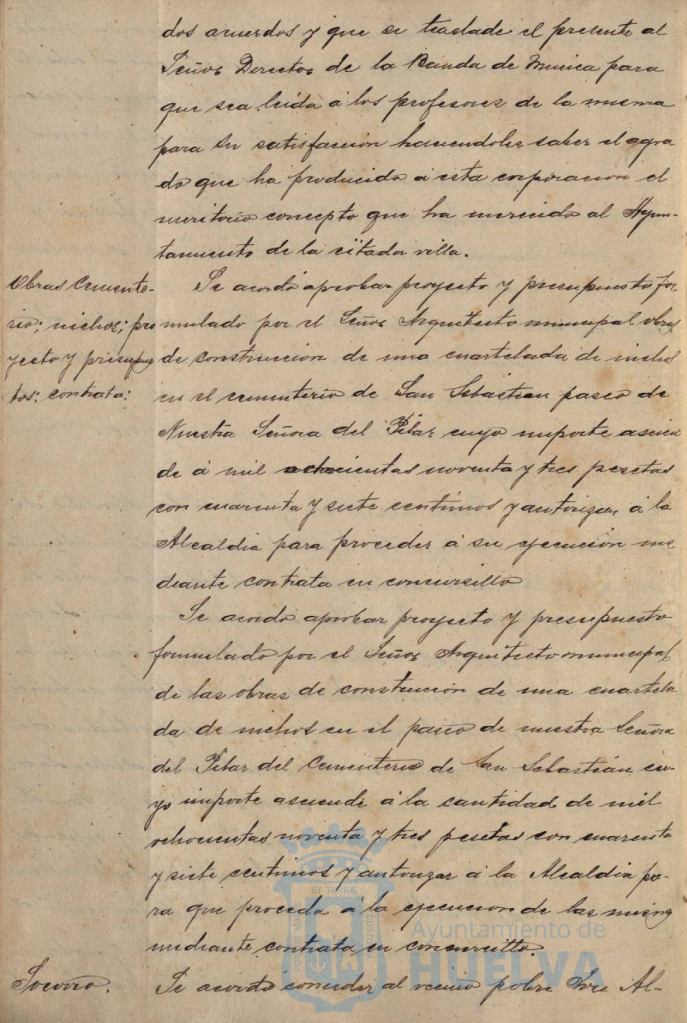 dos acuerdos y que se traslade el presente al
Señor Director de la Banda de Musica para
que sea leida á los profesores de la misma
para su satisfacción haciendoles saber el agra
do que ha producido á esta corporacion el
meritorio concepto que ha merecido al Ayun-
tamiento de la citada villa.
Obras Cemente-
rio; nichos; pro
yecto y presupues
tos: contrata:
Se acordó aprobar proyecto y presupuesto for
mulado por el Señor Arquitecto municipal obras
de construccion de una cuartelada de nichos
en el cementerio de San Sebastian paseo de
Nuestra Señora del Pilar cuyo importe ascien
de á mil ochocientas noventa y tres pesetas
con cuarenta y siete centimos y autorizar á la
Alcaldia para proceder á su ejecución me
diante contrata en concursillo
Se acordó aprobar proyecto y presupuesto
formulado por el Señor Arquitecto municipal
de las obras de construcion de una cuartela
da de nichos en el paseo de nuestra Señora
del Pilar del Cementerio de San Sebastián cu
yo importe asciende á la cantidad de mil
ochocientas noventa y tres pesetas con cuarenta
y siete centimos y autorizar á la Alcaldia pa-
ra que proceda á la ejecucion de las mismas
mediante contrata en concursillo.
Socorro.
Se acordó conceder al vecino pobre José Al-
Ayuntamiento de
HUELVA